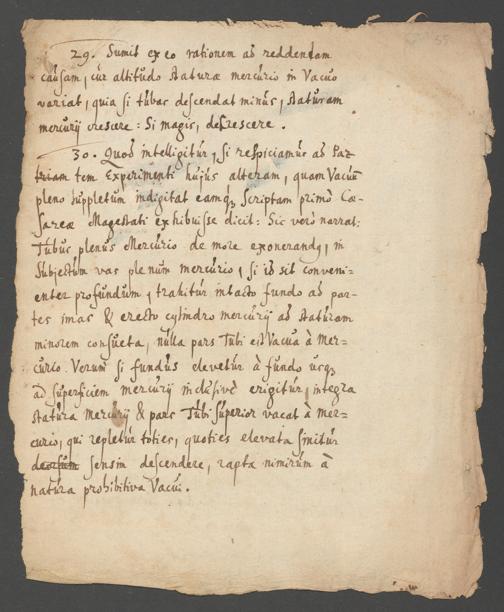 29. Sumit ex eo rationem ad reddendam
causam, cur altitudo staturæ mercurio in Vacuo
variat, quia si tubus descendat minus, staturam
mercurij crescere: Si magis, decrescere.
30. Quod intelligitur, si respiciamus ad Par=
tem Experimenti hujus alteram, quam Vacuū
pleno suppletum indigitat eamq; scriptam primò Cæ=
sareæ Magestati exhibuisse dicit: Sic verò narrat:
Tubus plenus Mercurio de more exonerandq, in
Subjectum vas plenum mercurio, si id sit conveni=
enter profundum, trahitur intacto fundo ad par=
tes imas & erecto cylindro mercurij ad staturam
minorem consueta, nulla pars Tubi est Vacua à Mer=
curio. Verum si fundus elevetur à fundo usq;
ad superficiem mercurij inclusivè erigitur, integra
statura Mercurij & pars Tubi superior vacat à mer=
curio, qui repletur toties, quoties elevata sinitur
deorsum sensim descendere, rapta nimirum à
natura prohibitiva Vacui.